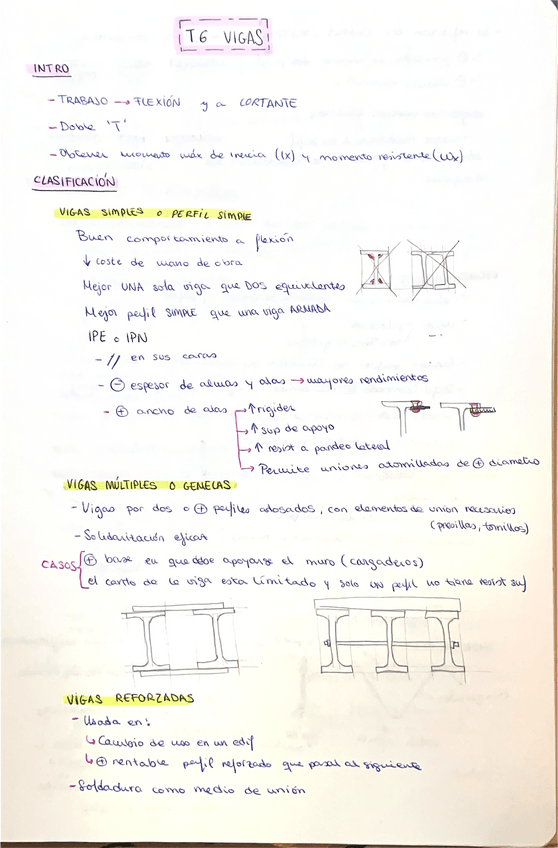 T6 VIGAS
INTRO
- TRABAJO → FLEXIÓN y a CORTANTE
- Doble 'T'
- Obtener momento máx de inercia (Ix) y momento resistente (Wx)
CLASIFICACIÓN
VIGAS SIMPLES o PERFIL SIMPLE
Buen comportamiento a flexión
↓ coste de mano de obra
Mejor UNA sola viga que DOS equivalentes
Mejor perfil SIMPLE que una viga ARMADA
IPE o IPN
- // en sus caras
- ⊖ espesor de almas y alas → mayores rendimientos
- ⊕ ancho de alas → ↑ rigidez
→ ↑ sup de apoyo
→ ↑ resist a pandeo lateral
→ Permite uniones atornilladas de ⊕ diametro
VIGAS MÚLTIPLES O GEMELAS
- Vigas por dos o ⊕ perfiles adosados, con elementos de union necesarios
(presillas, tornillos)
- Solidarización eficaz
CASOS { ⊕ base en que debe apoyarse el muro (cargaderos)
el canto de la viga esta limitado y solo UN perfil no tiene resist suf
VIGAS REFORZADAS
- Usada en:
↳ Cambio de uso en un edif
↳ ⊕ rentable perfil reforzado que pasar al siguiente
- Soldadura como medio de unión